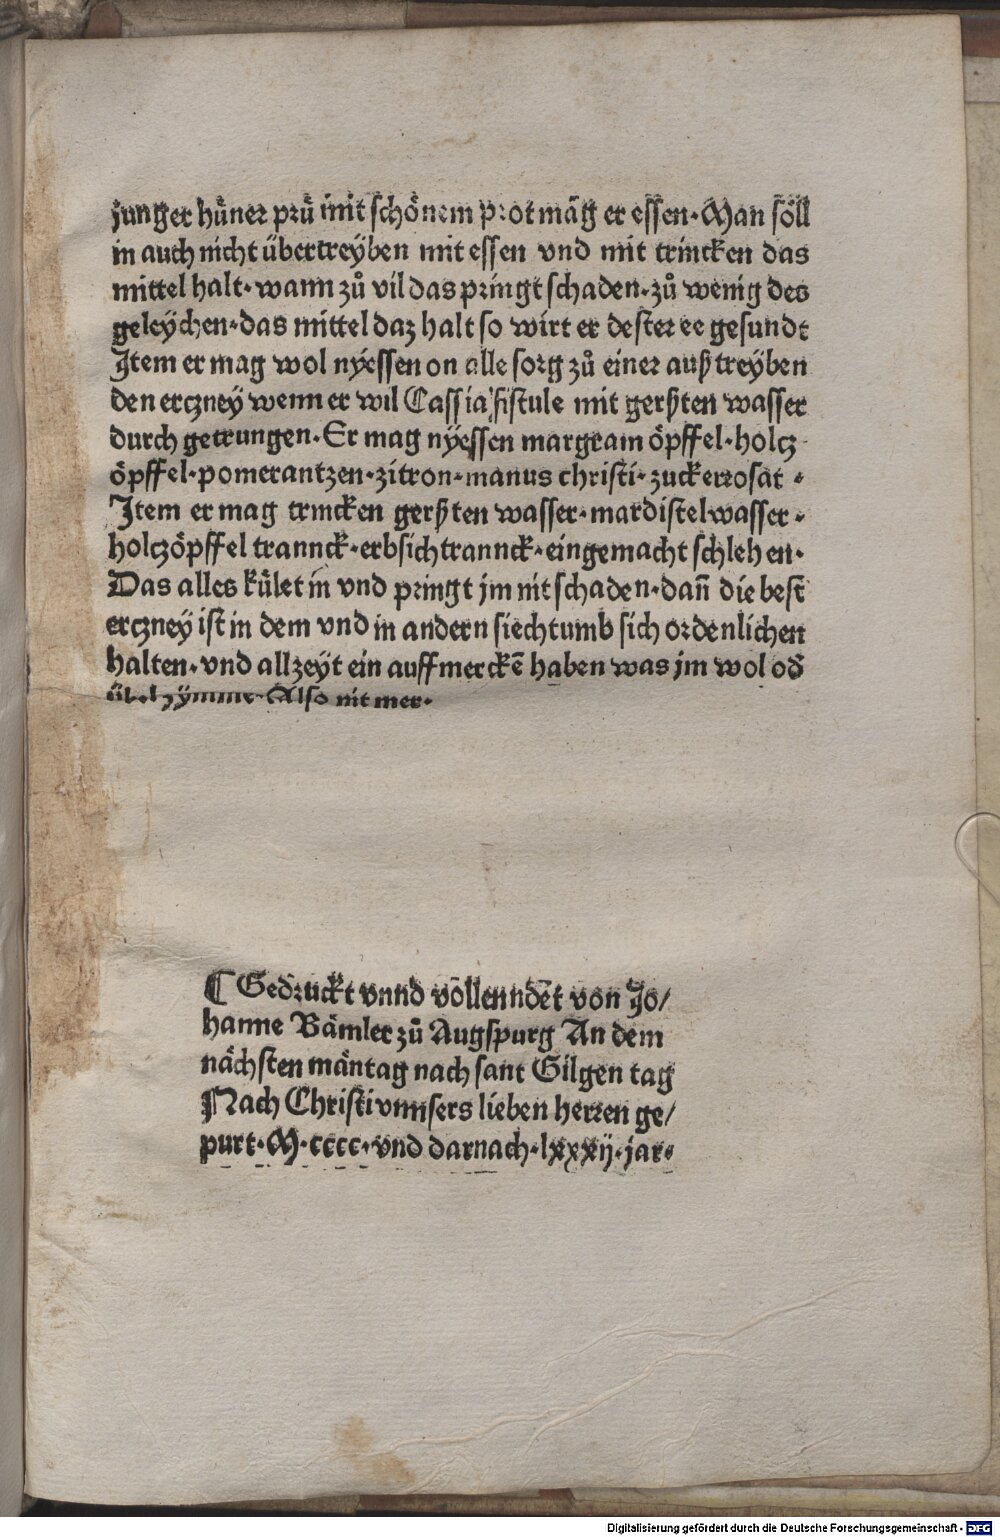 junger hůner prů mit schönem prot mag er essen· Man söll
in auch nicht übertreyben mit essen vnd mit trincken das
mittel halt· wann zů vil das pringt schaden· zů wenig des
geleychen· das mittel daz halt so wirt er dester ee gesundt
Item er mag wol nyessen on alle sorg zů einer außtreyben
den erczney wenn er wil Cassia fistule mit gerßten wasser
durch getrungen· Er mag nyessen margram öpffel· holcz
öpffel· pomerantzen· zitron· manus christi· zuckerrosat·
Item er mag trincken gerßten wasser· mardistelwasser·
holczöpffel trannck· erbsichtrannck· eingemacht schlehen·
Das alles kůlet in vnd pringt jm nit schaden· dañ die best
erczney ist in dem vnd in andern siechtumb sich ordenlichen
halten· vnd allzeyt ein auffmerckē haben was jm wol od
übel zymme· Also nit mer·
¶ Gedruckt vnnd vollenndet von Jo/
hanne Bämler zů Augspurg An dem
nächsten mäntag nach sant Gilgen tag
Nach Christi vnnsers lieben herren ge/
purt· M· cccc· vnd darnach· lxxxij· jar·
Digitalisierung gefördert durch die Deutsche Forschungsgemeinschaft - DFG